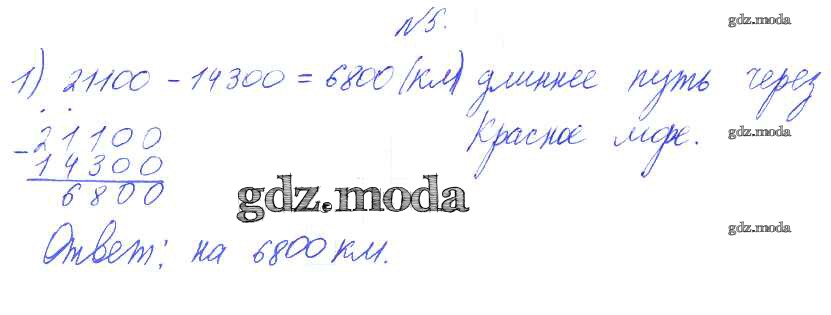 №5.
gdz.moda
1) 21100 - 14300 = 6800 (км) длиннее путь через
Красное море.
gdz.moda
- 21100
14300
6800
gdz.moda
gdz.moda
Ответ: на 6800 км.